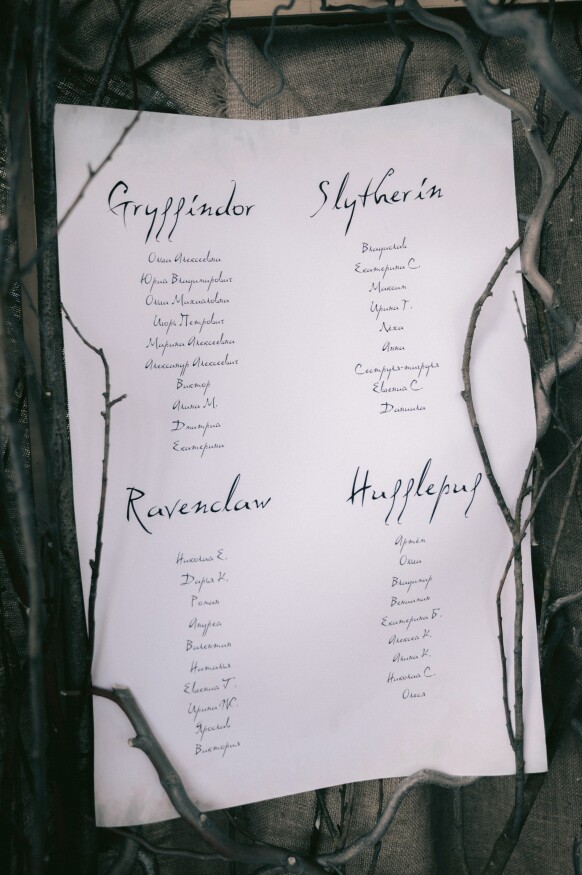 Gryffindor
Ольга Алексеевна
Юрий Владимирович
Ольга Михайловна
Игорь Петрович
Марина Алексеевна
Александр Алексеевич
Виктор
Алина М.
Дмитрий
Екатерина
Slytherin
Владислав
Екатерина С.
Максим
Ирина Т.
Лёха
Анна
Евгения С.
Данила
Ravenclaw
Николай Е.
Дарья К.
Роман
Андрей
Валентин
Наталья
Евгения Т.
Ирина Ж.
Ярослав
Виктория
Hufflepuf
Артём
Ольга
Владимир
Вениамин
Екатерина Б.
Алексей К.
Алина К.
Николай С.
Олеся